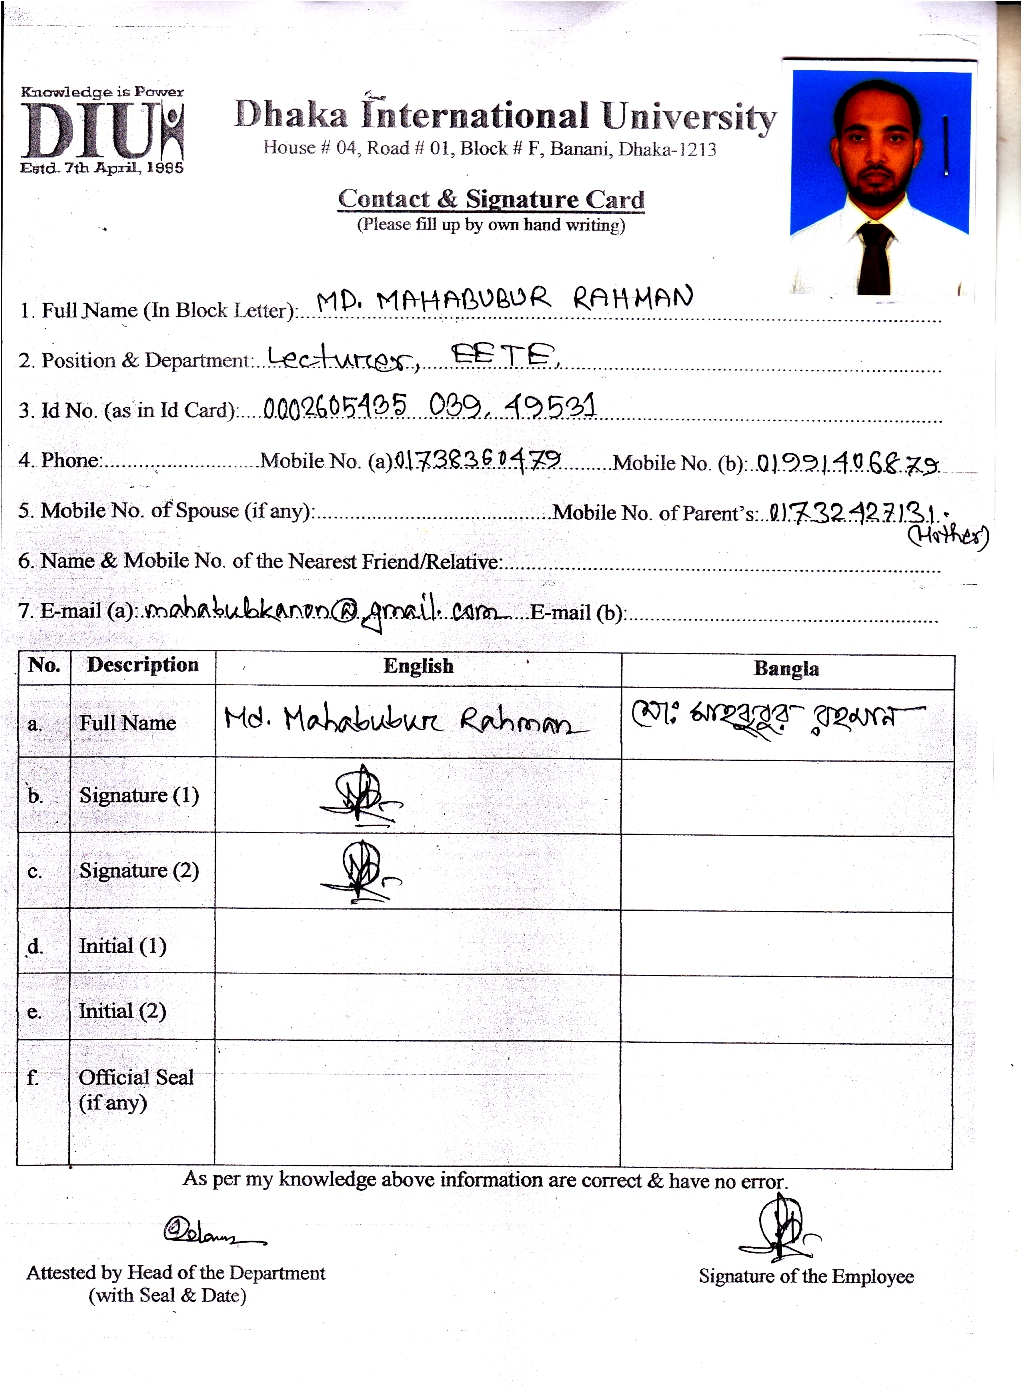 Knowledge is Power
DIU
Estd. 7th April, 1995
Dhaka International University
House # 04, Road # 01, Block # F, Banani, Dhaka-1213
Contact & Signature Card
(Please fill up by own hand writing)
1. Full Name (In Block Letter): MD. MAHABUBUR RAHMAN
2. Position & Department: Lecturer, EETE,
3. Id No. (as in Id Card): 0002605435 039, 49531
4. Phone: Mobile No. (a) 01738360479 Mobile No. (b): 01991406879
5. Mobile No. of Spouse (if any): Mobile No. of Parent's: 01732427131.
(Mother)
6. Name & Mobile No. of the Nearest Friend/Relative:
7. E-mail (a): mahabubkanon@gmail.com E-mail (b):
No. Description English Bangla
a. Full Name Md. Mahabubur Rahman মোঃ মাহবুবুর রহমান
b. Signature (1)
c. Signature (2)
d. Initial (1)
e. Initial (2)
f. Official Seal
(if any)
As per my knowledge above information are correct & have no error.
Attested by Head of the Department
(with Seal & Date)
Signature of the Employee